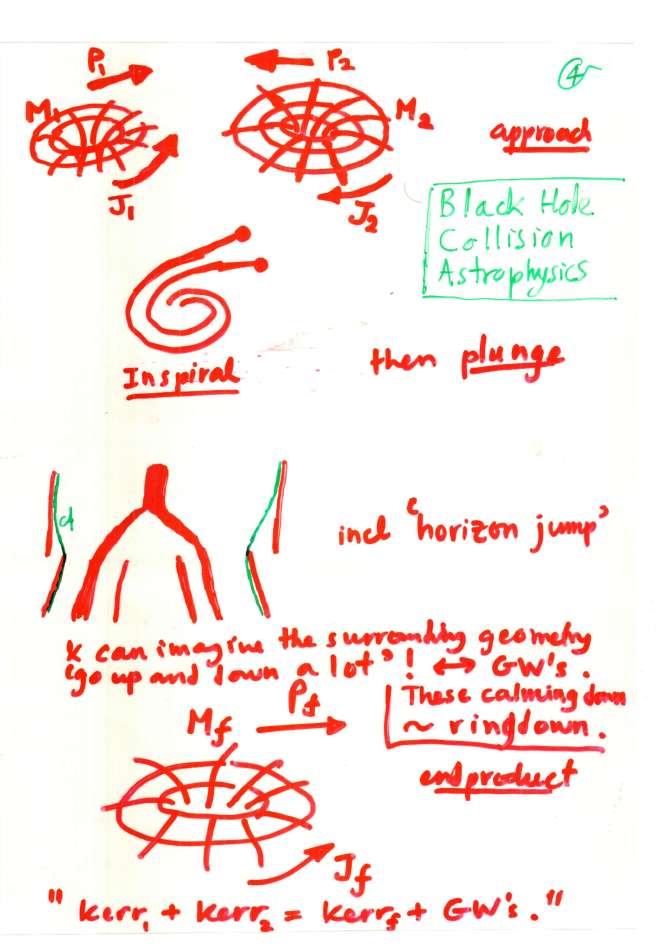 P₁
P₂
④
M₁
M₂
approach
J₁
J₂
Black Hole
Collision
Astrophysics
Inspiral
then plunge
incl 'horizon jump'
& can imagine the surrounding geometry
'go up and down a lot'! ↔ GW's.
These calming down
~ ringdown.
M_f
P_f
endproduct
J_f
"Kerr₁ + Kerr₂ = Kerr_f + GW's."